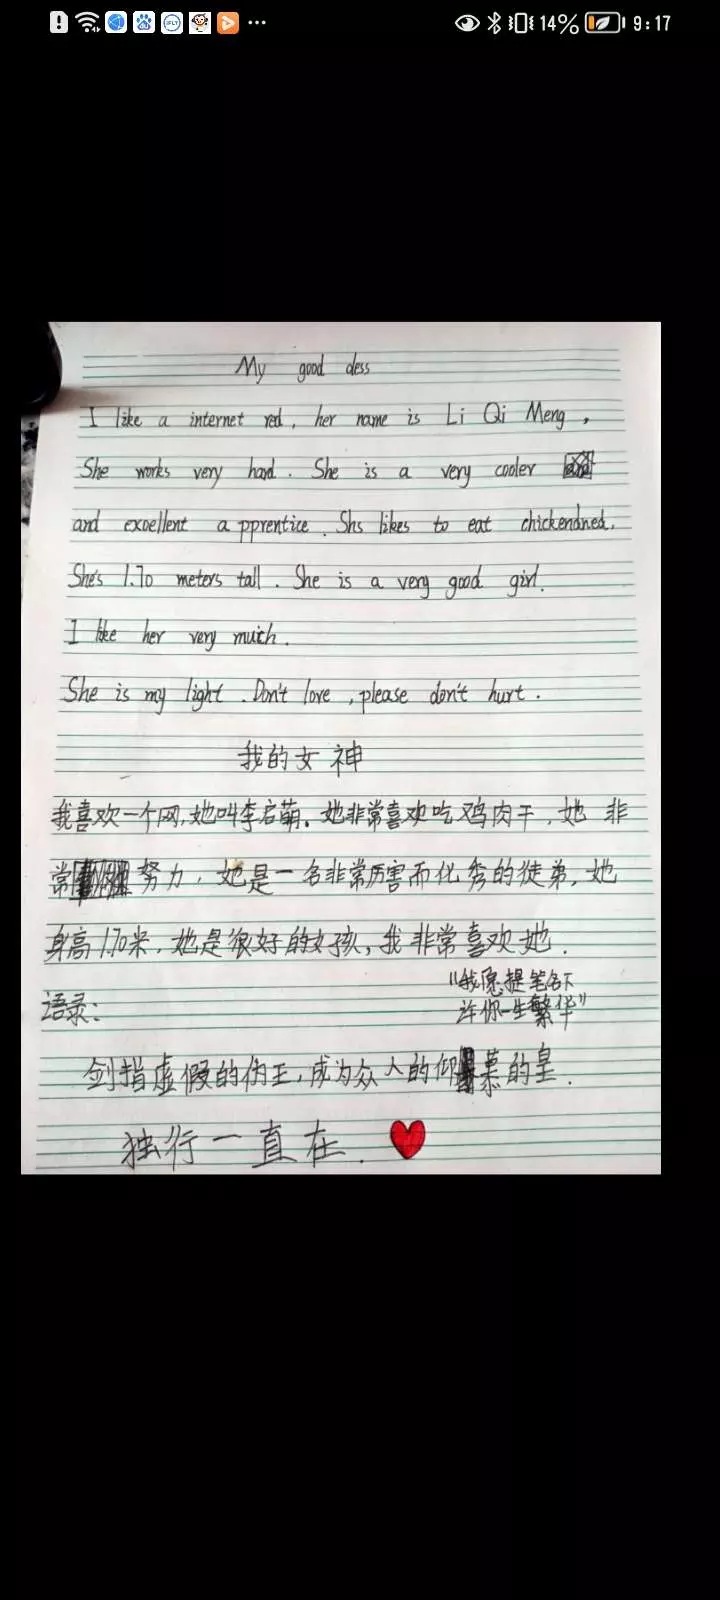 14% 9:17
My good dess
I like a internet red, her name is Li Qi Meng,
She works very hard. She is a very cooler
and exoellent a pprentice. Shs likes to eat chickendned.
She's 1.70 meters tall. She is a very good girl.
I like her very much.
She is my light. Don't love, please don't hurt.
我的女神
我喜欢一个网,她叫李启萌.她非常喜欢吃鸡肉干,她非
常努力,她是一名非常厉害而化秀的徒弟,她
身高1.70米,她是很好的女孩,我非常喜欢她.
"我愿提笔名下
语录:
许你一生繁华"
剑指虚假的伪王,成为众人的仰慕的皇.
独行一直在.